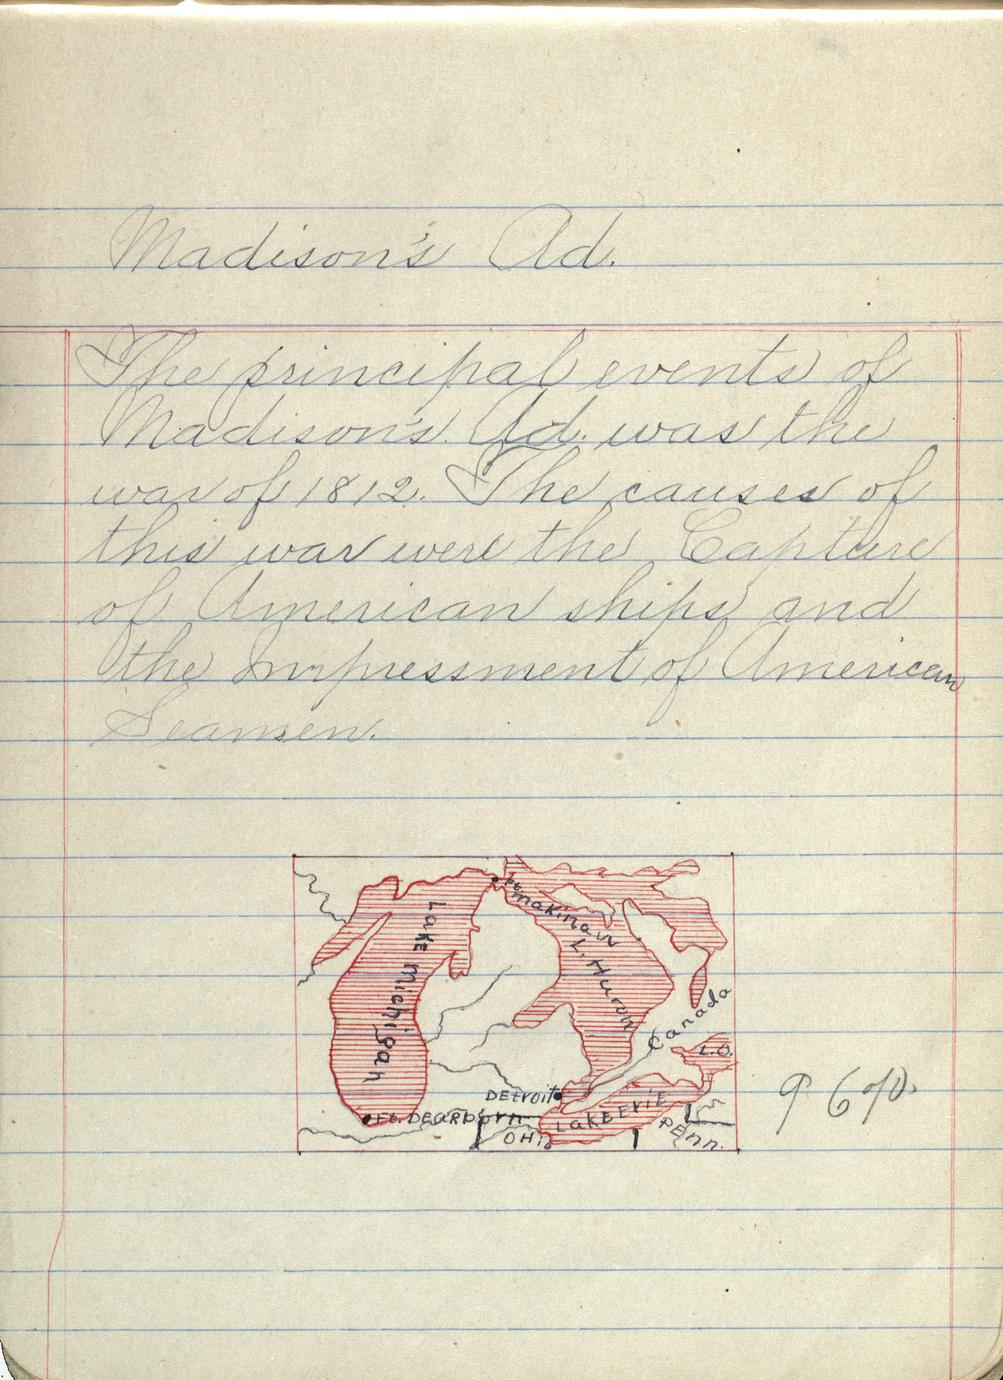 Madison's Ad.
The principal events of
Madison's. Ad. was the
war of 1812. The causes of
this war were the Capture
of American ships and
the Impressment of American
Seamen.
Ft. Makinaw
Lake Michigan
L. Huron
Canada
L.O.
Detroit
Ft. Dearborn
Lake Erie
Ohio
Penn.
96%.